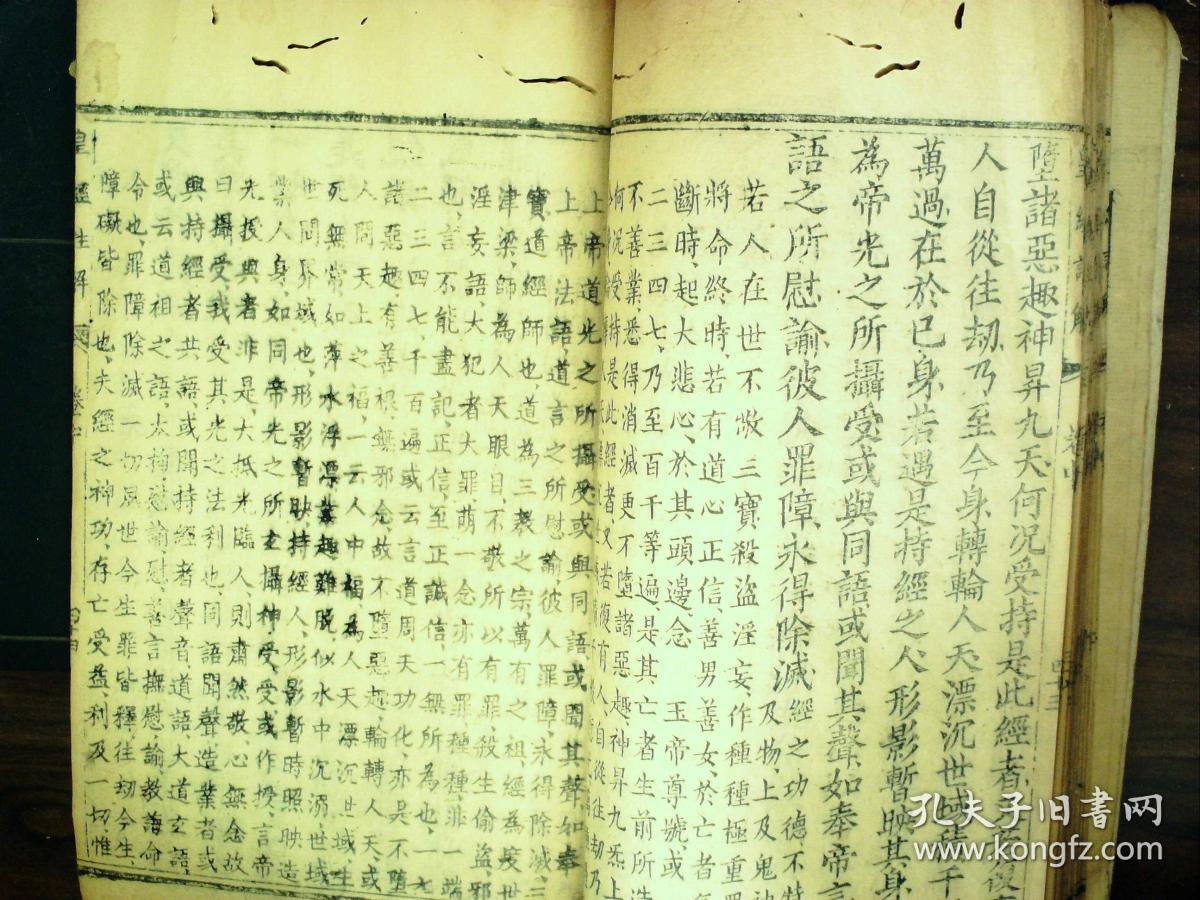 墮諸惡趣神昇九天何况受持是此經者又若復有
人自從往刼乃至今身轉輪人天漂沉世域積千
萬過在於已身若遇是持經之人形影暫映其身
為帝光之所攝受或與同語或聞其聲如奉帝言
語之所慰諭彼人罪障永得除滅經之功德不特
及物上及鬼神
若人在世不敬三寶殺盜淫妄作種種極重罪
將命終時若有道心正信善男善女於亡者氣
斷時起大悲心於其頭邊念 玉帝尊號或
二三四七乃至百千等遍是其亡者生前所造
不善業悉得消滅更不墮諸惡趣神昇九炁上
何况受持是此經者又若復有人自從往劫乃
上帝道光之所攝受或與同語或聞其聲如奉
上帝法語道言之所慰諭彼人罪障永得除滅三
寶道經師也道為三教之宗萬有之祖經為度世
津梁師為人天眼目不敬所以有罪殺生偷盜邪
淫妄語大犯者大罪萌一念亦有罪種種罪一端
也言不能盡記正信至正誠信一無所為也一七
二三四七千百遍或云言道周天功化亦是不墮
諸惡趣有善根無邪念故不墮惡趣輪轉人天或
人間天上之福一云人中福為人天漂沉世域生
死無常如萍水浮漂業趣難脱似水中沉溺世域
世間界域也形影暫映持經人形影暫時照映造
業人身如同帝光之所立攝神受受或作授言帝
光授與者非是大抵光臨人則肅然敬心無念故
曰攝受我受其光之法利也同語聞聲造業者或
與持經者共語或聞持經者聲音道語大道玄語
或云道相之語太拘慰諭慰善言撫慰諭教誨命
令也罪障除滅一切夙世今生罪皆釋往刼今生
障礙皆除也夫經之神功存亡受益利及一切惟
皇經註解 卷四
孔夫子旧書网
www.kongfz.com